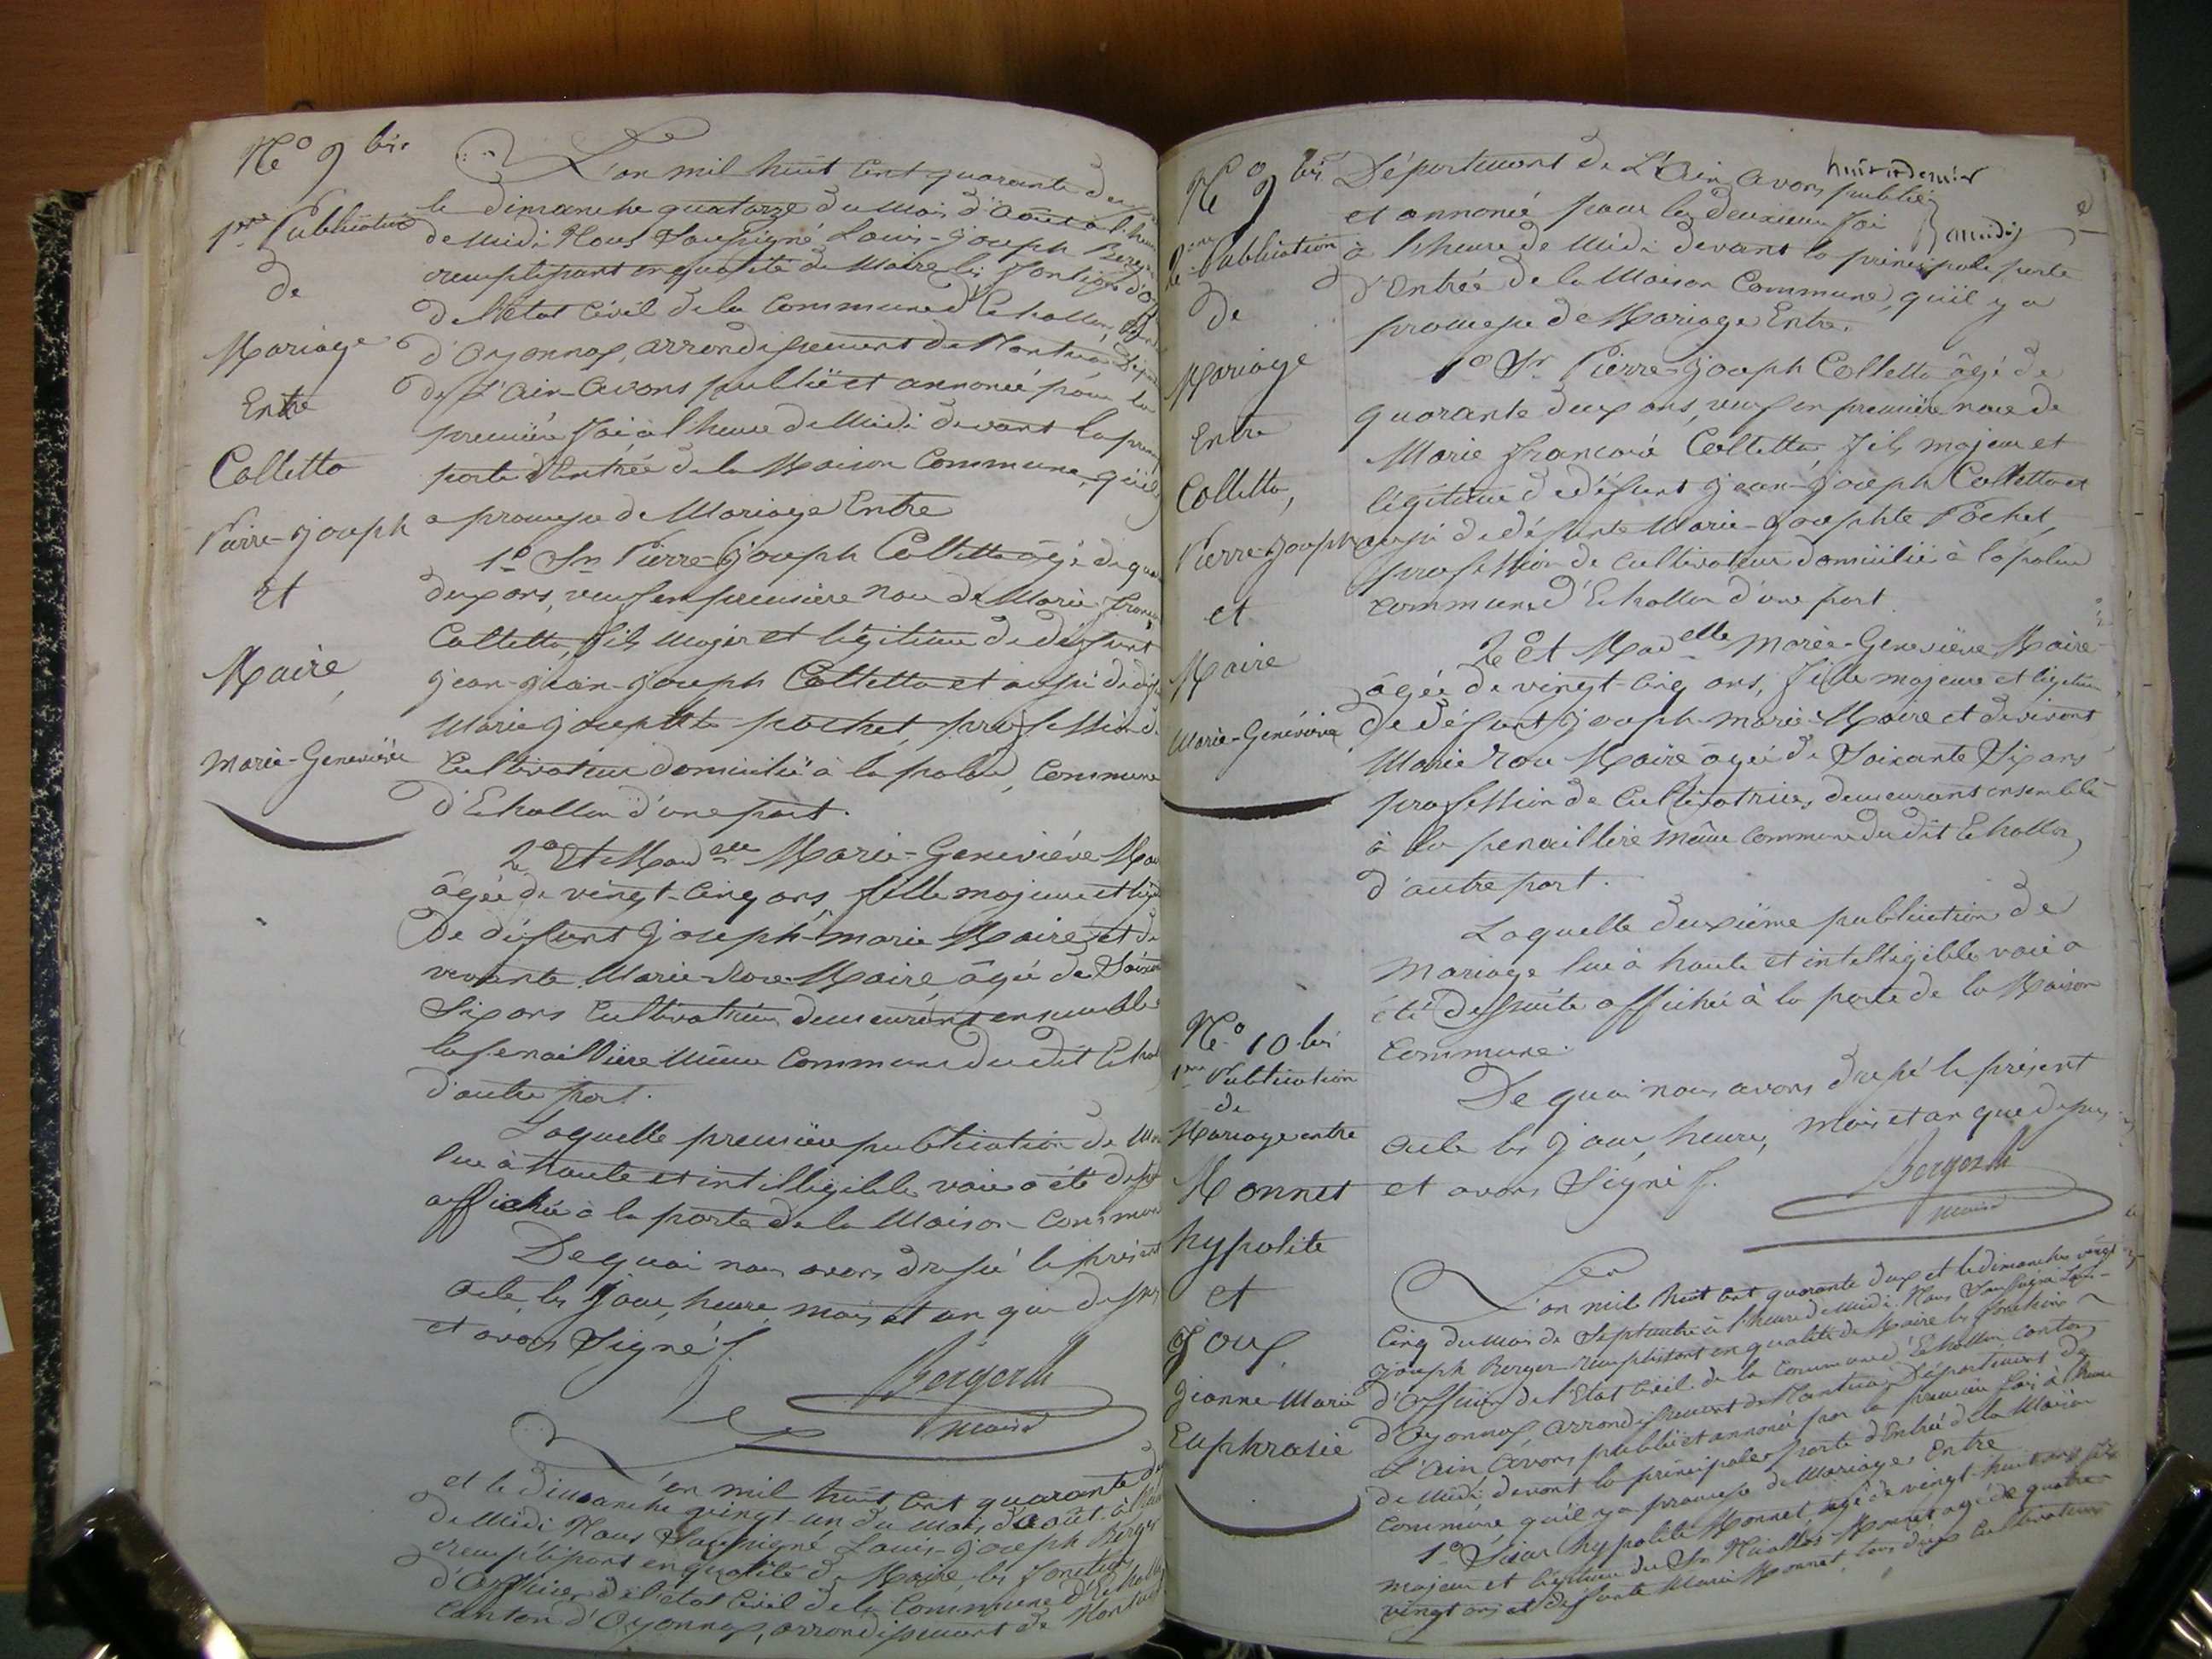 No 9 bis
1ère Publication
de
Mariage
Entre
Colletta
Pierre-Joseph
et
Maire,
Marie-Geneviève
L'an mil huit cent quarante deux
le dimanche quatorze du mois d'Août à l'heure
de midi Nous Soussigné Louis-Joseph Berger
remplissant en qualité de Maire les fonctions d'Of
de l'état Civil de la Commune d'Echallon, Canton
d'Oyonnax, arrondissement de Nantua Dépar
de L'Ain avons publié et annoncé pour la
première fois à l'heure de Midi devant la prin
porte d'Entrée de la Maison Commune, qu'il y
a promesse de Mariage Entre
1o Sr Pierre-Joseph Colletta âgé de qua
deux ans, veuf en première noce de Marie franç
Colletta, fils majer et légitime de défunt
Jean-Jean-Joseph Colletta et aussi de déf
Marie josephte pochet, profession de
Cultivateur domicilié à la palud, Commune
d'Echallon d'une part.
2o Et Madelle Marie-Geneviève Mai
âgée de vingt-cinq ans, fille majeure et légit
De défunt Joseph-marie Maire et de
vivante Marie-Rose Maire, âgée de Soixan
Six ans Cultivatrices demeurant ensemble
la penaillière Même Commune du dit Echal
d'autre part.
Laquelle première publication de Mar
lue à haute et intelligible voie a été dessu
affichée à la porte de la Maison Commun
De quoi nous avons dressé le présent
acte, les jour, heure, mois et an que dessus
et avons Signé.
Bergerlh
maire
L'an mil huit cent quarante deux
et le dimanche vingt-un du mois d'août à l'heure
de Midi Nous Soussigné Louis-Joseph Berger
remplissant en qualité de Maire les fonctions
d'officier de l'état Civil de la Commune d'Echallon
Canton d'Oyonnax, arrondissement de Nantua
No 9 bis
2ème Publication
de
Mariage
Entre
Colletta,
Pierre-Joseph
et
Maire
Marie-Geneviève
Département de L'Ain avons publié
et annoncé pour la deuxième foi
à l'heure de Midi devant la principale porte
d'Entrée de la Maison Commune, qu'il y a
promesse de Mariage Entre.
1o Sr Pierre-Joseph Colletta âgé de
quarante deux ans, veuf en première noce de
Marie Colletta fils majeur et
légitime de défunt Jean-Joseph Colletta et
aussi de défunte Marie-Josephte Pochet,
profession de cultivateur domicilié à la palud
commune d'Echallon d'une part.
2o Et Madelle Marie-Geneviève Maire
âgée de vingt-cinq ans, fille majeure et légitime
de défunt Joseph-Marie Maire et de vivant
Marie Rose Maire âgée de Soixante Six ans
profession de Cultivatrices, demeurant ensemble
à la penaillière même Commune du dit Echallon
d'autre part.
Laquelle deuxième publication de
Mariage lue à haute et intelligible voie a
été dessuite affichée à la porte de la Maison
Commune.
De quoi nous avons dressé le présent
acte les jour, heure, mois et an que dessus
et avons Signé.
Bergerlh
maire
No 10 bis
1ère Publication
de
Mariage entre
Monnet
hypolite
et
Joux
Jeanne-Marie
Euphrasie
L'an mil huit cent quarante deux et le dimanche vingt
Cinq du mois de Septembre à l'heure de midi. Nous Soussigné Louis-
Joseph Berger remplissant en qualité de Maire les fonctions
d'Officier de l'Etat Civil de la Commune d'Echallon Canton
d'Oyonnax, arrondissement de Nantua Département de
L'Ain Avons publié et annoncé pour la première fois à l'heure
de Midi devant la principale porte d'Entrée de la Maison
Commune qu'il y a promesse de Mariage Entre
1o Sieur hypolite Monnet, âgé de vingt-huit ans fils
majeur et légitime du Sr Nicollas Monnet âgé de quatre
vingt ans et défunte Marie Monnet, tous deux Cultivateurs